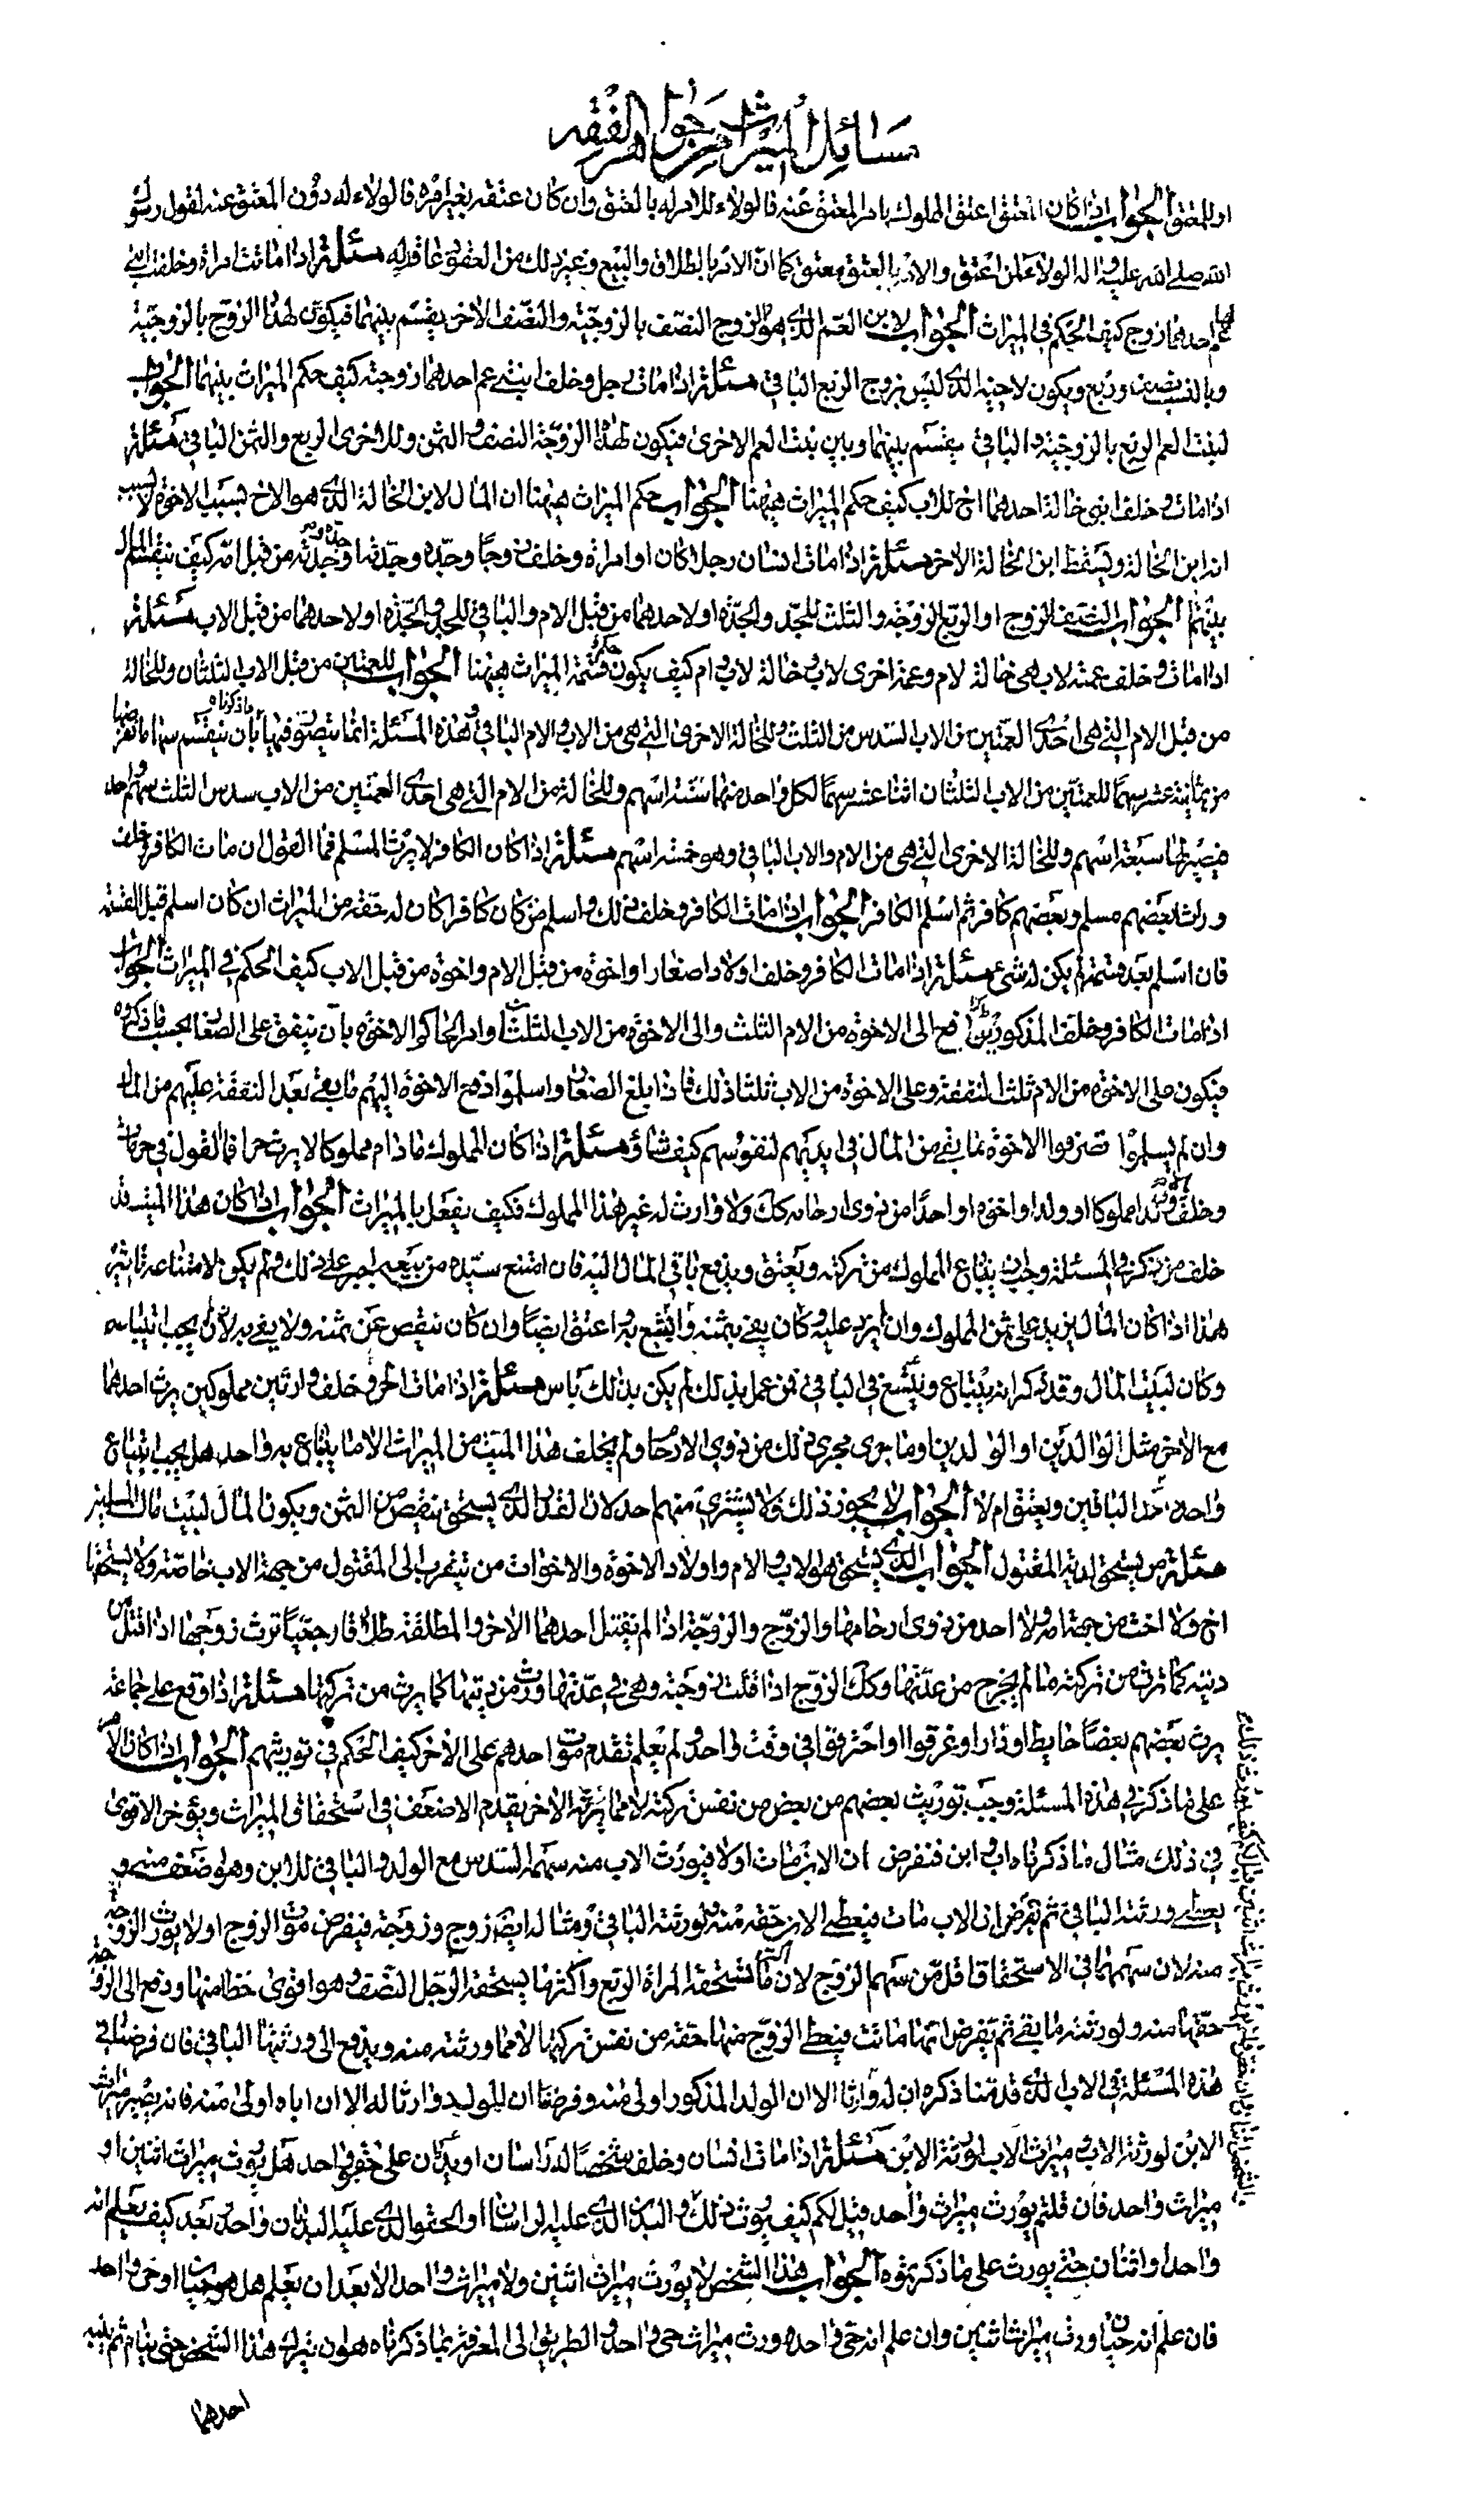 مسائل الميراث من جواهر الفقه
او للمعتق الجواب اذا كان المعتق اعتق المملوك بامر المعتق عنه فالولاء للامر له بالعتق وان كان عتقه بغير امره فالولاء له دون المعتق عنه لقول رسول
الله صلى الله عليه واله الولاء لمن اعتق والامر بالعتق معتق كما ان الامر بالطلاق والبيع وغير ذلك من العقود عاقد له مسئلة اذا ماتت امراة وخلفت ابنى
عم لها احدهما زوج كيف الحكم في الميراث الجواب لابن العم الذى هو الزوج النصف بالزوجية والنصف الاخر يقسم بينهما فيكون لهذا الزوج بالزوجية
وبالنسب نصف وربع ويكون لاخيه الذى ليس بزوج الربع الباقي مسئلة اذا مات رجل وخلف ابنتى عم احدهما زوجته كيف حكم الميراث بينهما الجواب
لبنت العم الربع بالزوجية والباقي يقسم بينهما وبين بنت العم الاخرى فيكون لهذه الزوجة النصف والثمن وللاخرى الربع والثمن الباقي مسئلة
اذا مات وخلف ابنى خالة احدهما اخ للاب كيف حكم الميراث هيهنا الجواب حكم الميراث هيهنا ان المال لابن الخالة الذى هو الاخ بسبب الاخوة لا بسبب
انه ابن الخالة ويسقط ابن الخالة الاخر مسئلة اذا مات انسان رجلا كان او امراة وخلف زوجا وجده وجدتها وجده وجدته من قبل امه كيف ينقسم المال
بينهم الجواب النصف للزوج او الربع للزوجة والثلث للجد والجدة او لاحدهما من قبل الام والباقي للجد والجدة او لاحدهما من قبل الاب مسئلة
اذا مات وخلف عمته لاب هى خالة لام وعمة اخرى لاب وخالة لاب وام كيف يكون حكم قسمة الميراث هيهنا الجواب للعمتين من قبل الاب الثلثان وللخالة
من قبل الام التى هى احدى العمتين من الاب السدس من الثلث وللخالة الاخرى التى هى من الاب والام الباقي وهذه المسئلة انما يتصور فيها ما ذكرناه بان ينقسم سهامها نفرضها
من ثمانية عشر سهما للعمتين من الاب الثلثان اثنا عشر سهما لكل واحدة منهما ستة اسهم وللخالة من الام التى هى احدى العمتين من الاب سدس الثلث سهم واحد
فيصير لها سبعة اسهم وللخالة الاخرى التى هى من الام والاب الباقي وهو خمسة اسهم مسئلة اذا كان الكافر لا يرث المسلم فما القول ان مات الكافر وخلف
وراث بعضهم مسلم وبعضهم كافر ثم اسلم الكافر الجواب اذا مات الكافر وخلف ذلك واسلم من كان كافرا كان له حقه من الميراث ان كان اسلم قبل القسمة
فان اسلم بعد قسمته لم يكن له شىء مسئلة اذا مات الكافر وخلف اولادا صغارا واخوة من قبل الام واخوة من قبل الاب كيف الحكم في الميراث الجواب
اذا مات الكافر وخلف المذكورين دفع الى الاخوة من الام الثلث والى الاخوة من الاب الثلثان وامر الحاكم الاخوة بان ينفق على الصغار بحسب ما ذكروه
فيكون على الاخوة من الام ثلث النفقة وعلى الاخوة من الاب ثلثا ذلك فاذا بلغ الصغار واسلموا دفع الاخوة اليهم ما بقى بعد النفقة عليهم من المال
وان لم يسلموا تصرفوا الاخوة بما بقى من المال في ايديهم لنفوسهم كيف شاؤ مسئلة اذا كان المملوك ما دام مملوكا لا يرث حرا فما القول في حر مات
وخلف والدا مملوكا او ولدا او اخوة او احدا من ذوى ارحامه كك ولا وارث له غير هذا المملوك فكيف يفعل بالميراث الجواب اذا كان هذا الميت قد
خلف من ذكر في المسئلة وجب ان يبتاع المملوك من تركته ويعتق ويدفع باقي المال اليه فان امتنع سيده من بيعه اجبر على ذلك ولم يكن لامتناعه تاثير
هذا اذا كان المال يزيد على ثمن المملوك وان لم يزد عليه وكان يفى بثمنه وابتيع به واعتق ايضا وان كان ينقص عن ثمنه ولا يفى به لم يجب ابتياعه
وكان لبيت المال وقد ذكر انه يبتاع ويستسعى في الباقي فمن عمل بذلك لم يكن بذلك باس مسئلة اذا مات الحر وخلف وارثين مملوكين يرث احدهما
مع الاخر مثل الوالدين او الولدين او ما جرى مجرى ذلك من ذوى الارحام ولم يخلف هذا الميت من الميراث الا ما يبتاع به واحد هل يجب ابتياع
واحد من الباقين ويعتق ام لا الجواب لا يجوز ذلك ولا يشترى منهم احد لان القدر الذى يستحق ينقص من الثمن ويكون المال لبيت مال المسلمين
مسئلة من يستحق لدية المقتول الجواب الذى يستحق هو الاب والام واولاد الاخوة والاخوات من يتقرب الى المقتول من جهة الاب خاصة ولا يستحقها
اخ ولا اخت من جهة امه ولا احد من ذوى ارحامها والزوج والزوجة اذا لم يقتل احدهما الاخر والمطلقة طلاقا رجعيا ترث زوجها اذا قتل من
ديته كما ترث من تركته ما لم يخرج من عدتها وكك الزوج اذا قتلت زوجته وهى في عدتها ورث من ديتها كما يرث من تركتها مسئلة اذا وقع على جماعة
يرث بعضهم بعضا حايط او دار او غرقوا او احترقوا في وقت واحد ولم يعلم تقدم موت احدهم على الاخر كيف الحكم في توريثهم الجواب اذا كان الامر
على ما ذكر في هذه المسئلة وجب توريث بعضهم من بعض من نفس تركته لا مما يرثه الاخر يقدم الاضعف في استحقاق الميراث ويؤخر الاقوى
في ذلك مثال ما ذكرناه اب وابن فنفرض ان الابن مات اولا فيورث الاب منه سهمه السدس مع الولد والباقي للابن وهو اضعف منه و
يعطى ورثته الباقي ثم نفرض ان الاب مات فيعطى الابن حقه منه ولورثته الباقي ومثاله ايضا زوج وزوجة فنفرض موت الزوج اولا ويورث الزوجة
منه لان سهمها في الاستحقاق اقل من سهم الزوج لان اكثر ما تستحقه المراة الربع واكثرها يستحقه الرجل النصف وهو اقوى حظا منها ودفع الى الزوجة
حقها منه ولورثته ما بقى ثم نفرض انها ماتت فيعطى الزوج منها حقه من نفس تركتها لا مما ورثته منه ويدفع الى ورثتها الباقي فان فرضنا في
هذه المسئلة في الاب الذى قدمنا ذكره ان له وارثا الا ان الولد المذكور اولى منه وفرضنا ان للولد وارثا له الا ان اباه اولى منه فانه يصير ميراث
الابن لورثة الاب وميراث الاب لورثة الابن مسئلة اذا مات انسان وخلف شخصا له راسان او بدنان على حقو واحد هل يورث ميراث اثنين او
ميراث واحد فان قلتم يورث ميراث واحد قيل لكم كيف يورث ذلك والبدن الذى عليه الراسان او الحقو الذى عليه البدنان واحد بعد كيف يعلم انه
واحد او اثنان حتى يورث على ما ذكرتموه الجواب هذا الشخص لا يورث ميراث اثنين ولا ميراث واحد الا بعد ان يعلم هل هو حيان او حى واحد
فان علم انه حيان ورث ميراث اثنين وان علم انه حى واحد ورث ميراث حى واحد والطريق الى المعرفة بما ذكرناه هو ان يترك هذا الشخص حتى ينام ثم ينبه
احدهما